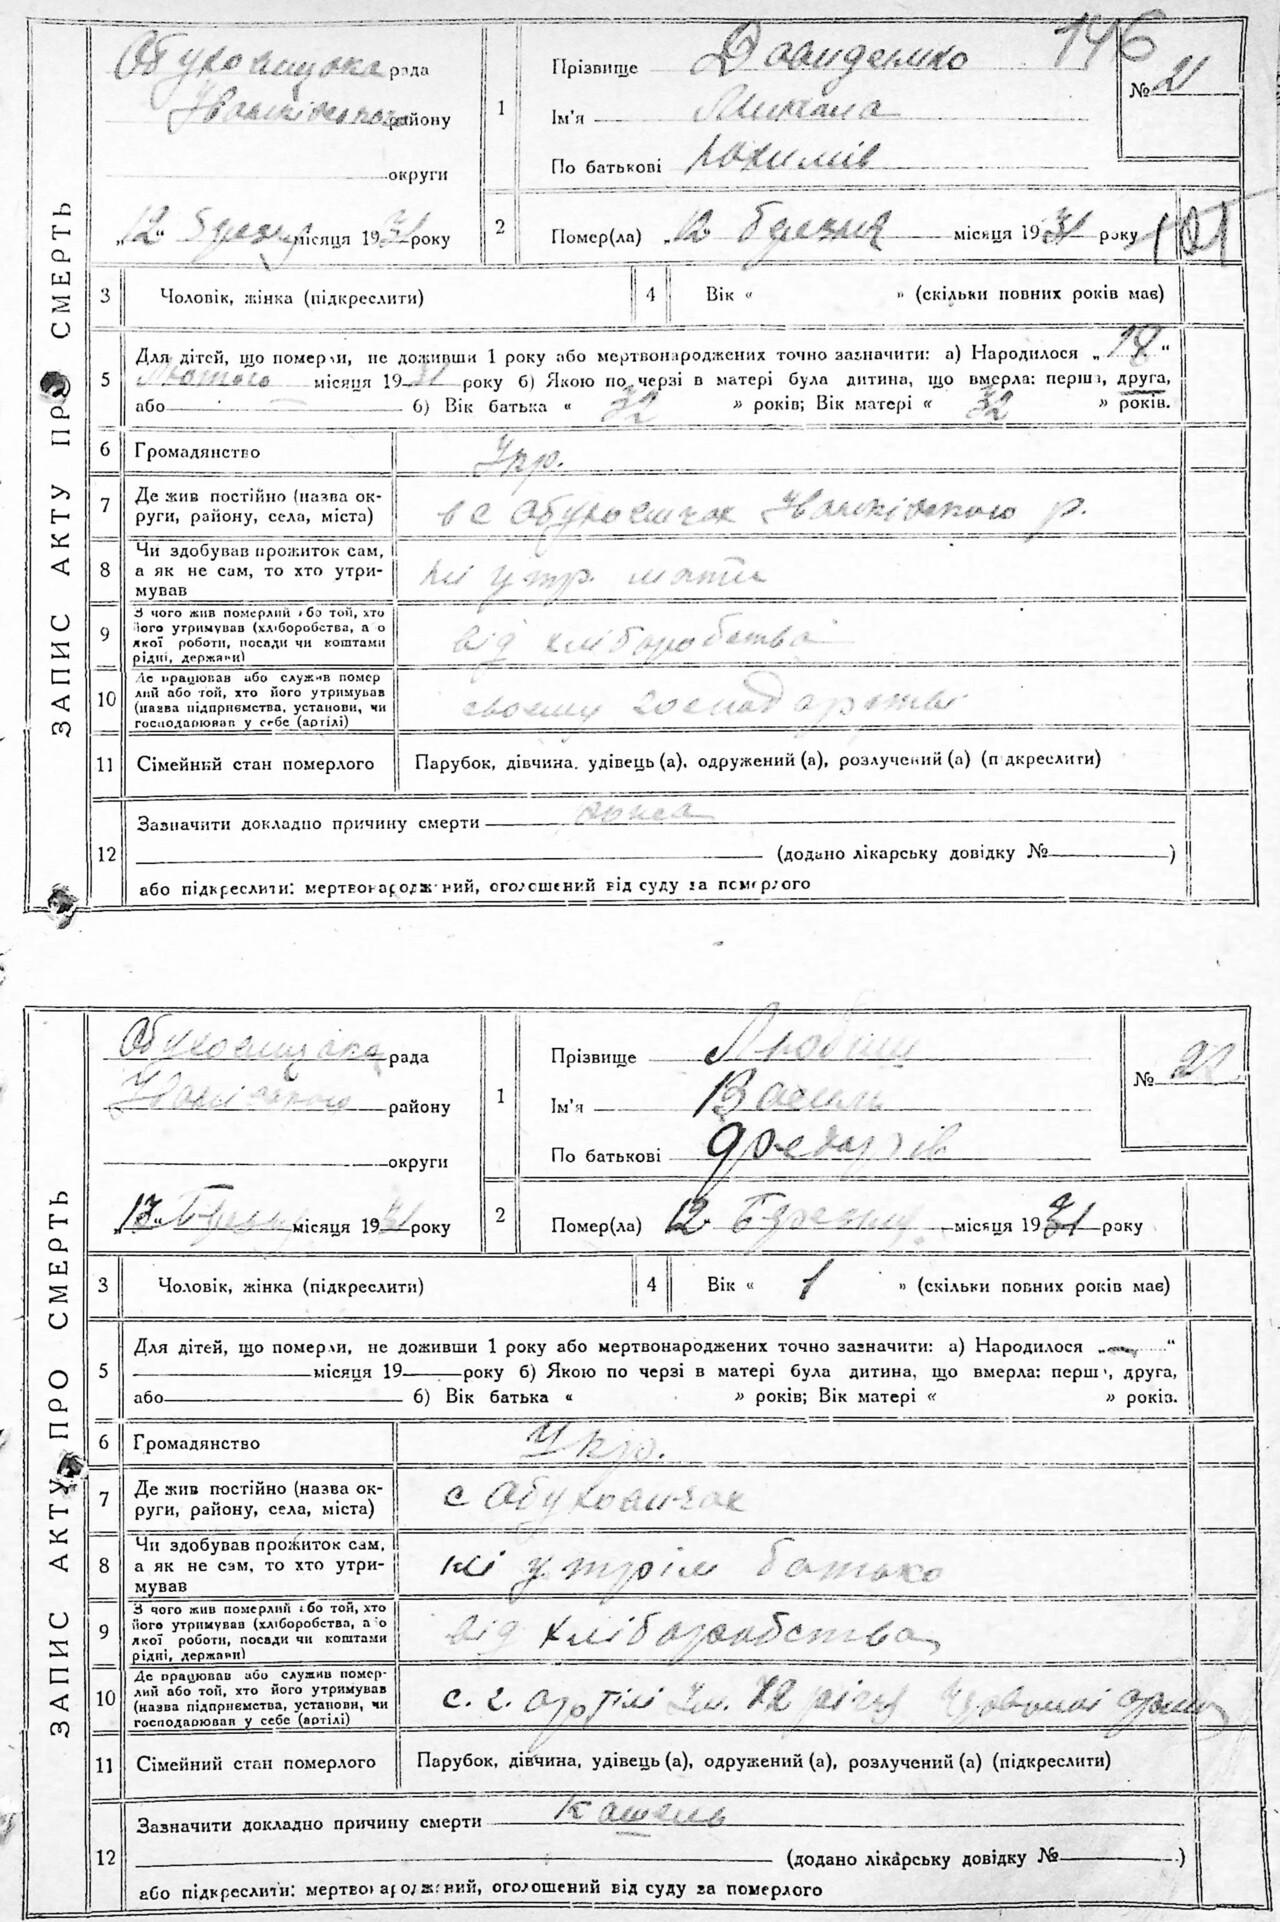 ЗАПИС АКТУ ПРО СМЕРТЬ
146
рада
району
округи
„12“ місяця 1931 року
1
Прізвище Давиденко
Ім'я
По батькові
№ 21
2
Помер(ла) „12 березня місяця 1931 року
3 Чоловік, жінка (підкреслити)
4 Вік « » (скільки повних років має)
5
Для дітей, що померли, не доживши 1 року або мертвонароджених точно зазначити: а) Народилося „ “
Лютого місяця 1931 року б) Якою по черзі в матері була дитина, що вмерла: перша, друга,
або б) Вік батька « 32 » років; Вік матері « 32 » років.
6 Громадянство Укр.
7
Де жив постійно (назва ок-
руги, району, села, міста)
в с Обуховичах Іванківського р.
8
Чи здобував прожиток сам,
а як не сам, то хто утри-
мував
на утр. мати
9
З чого жив померлий або той, хто
його утримував (хліборобства, або
якої роботи, посади чи коштами
рідні, держави)
від хліборобства
10
Де працював або служив помер
лий або той, хто його утримував
(назва підприємства, установи, чи
господарював у себе (артілі)
своему господарстві
11 Сімейний стан померлого Парубок, дівчина, удівець (а), одружений (а), розлучений (а) (підкреслити)
12
Зазначити докладно причину смерти
(додано лікарську довідку № )
або підкреслити: мертвонароджений, оголошений від суду за померлого
ЗАПИС АКТУ ПРО СМЕРТЬ
рада
району
округи
місяця 1931 року
1
Прізвище
Ім'я Василь
По батькові Федорів
№
2
Помер(ла) 12 Березня місяця 1931 року
3 Чоловік, жінка (підкреслити)
4 Вік « 1 » (скільки повних років має)
5
Для дітей, що померли, не доживши 1 року або мертвонароджених точно зазначити: а) Народилося „ “
місяця 19 року б) Якою по черзі в матері була дитина, що вмерла: перша, друга,
або б) Вік батька « » років; Вік матері « » років.
6 Громадянство Укр.
7
Де жив постійно (назва ок-
руги, району, села, міста)
с Обуховичах
8
Чи здобував прожиток сам,
а як не сам, то хто утри-
мував
батько
9
З чого жив померлий або той, хто
його утримував (хліборобства, або
якої роботи, посади чи коштами
рідні, держави)
від хліборобства
10
Де працював або служив помер-
лий або той, хто його утримував
(назва підприємства, установи, чи
господарював у себе (артілі)
с. г. артілі Ім. 12 річчя Червоної армії
11 Сімейний стан померлого Парубок, дівчина, удівець (а), одружений (а), розлучений (а) (підкреслити)
12
Зазначити докладно причину смерти Кашель
(додано лікарську довідку № )
або підкреслити: мертвонароджений, оголошений від суду за померлого